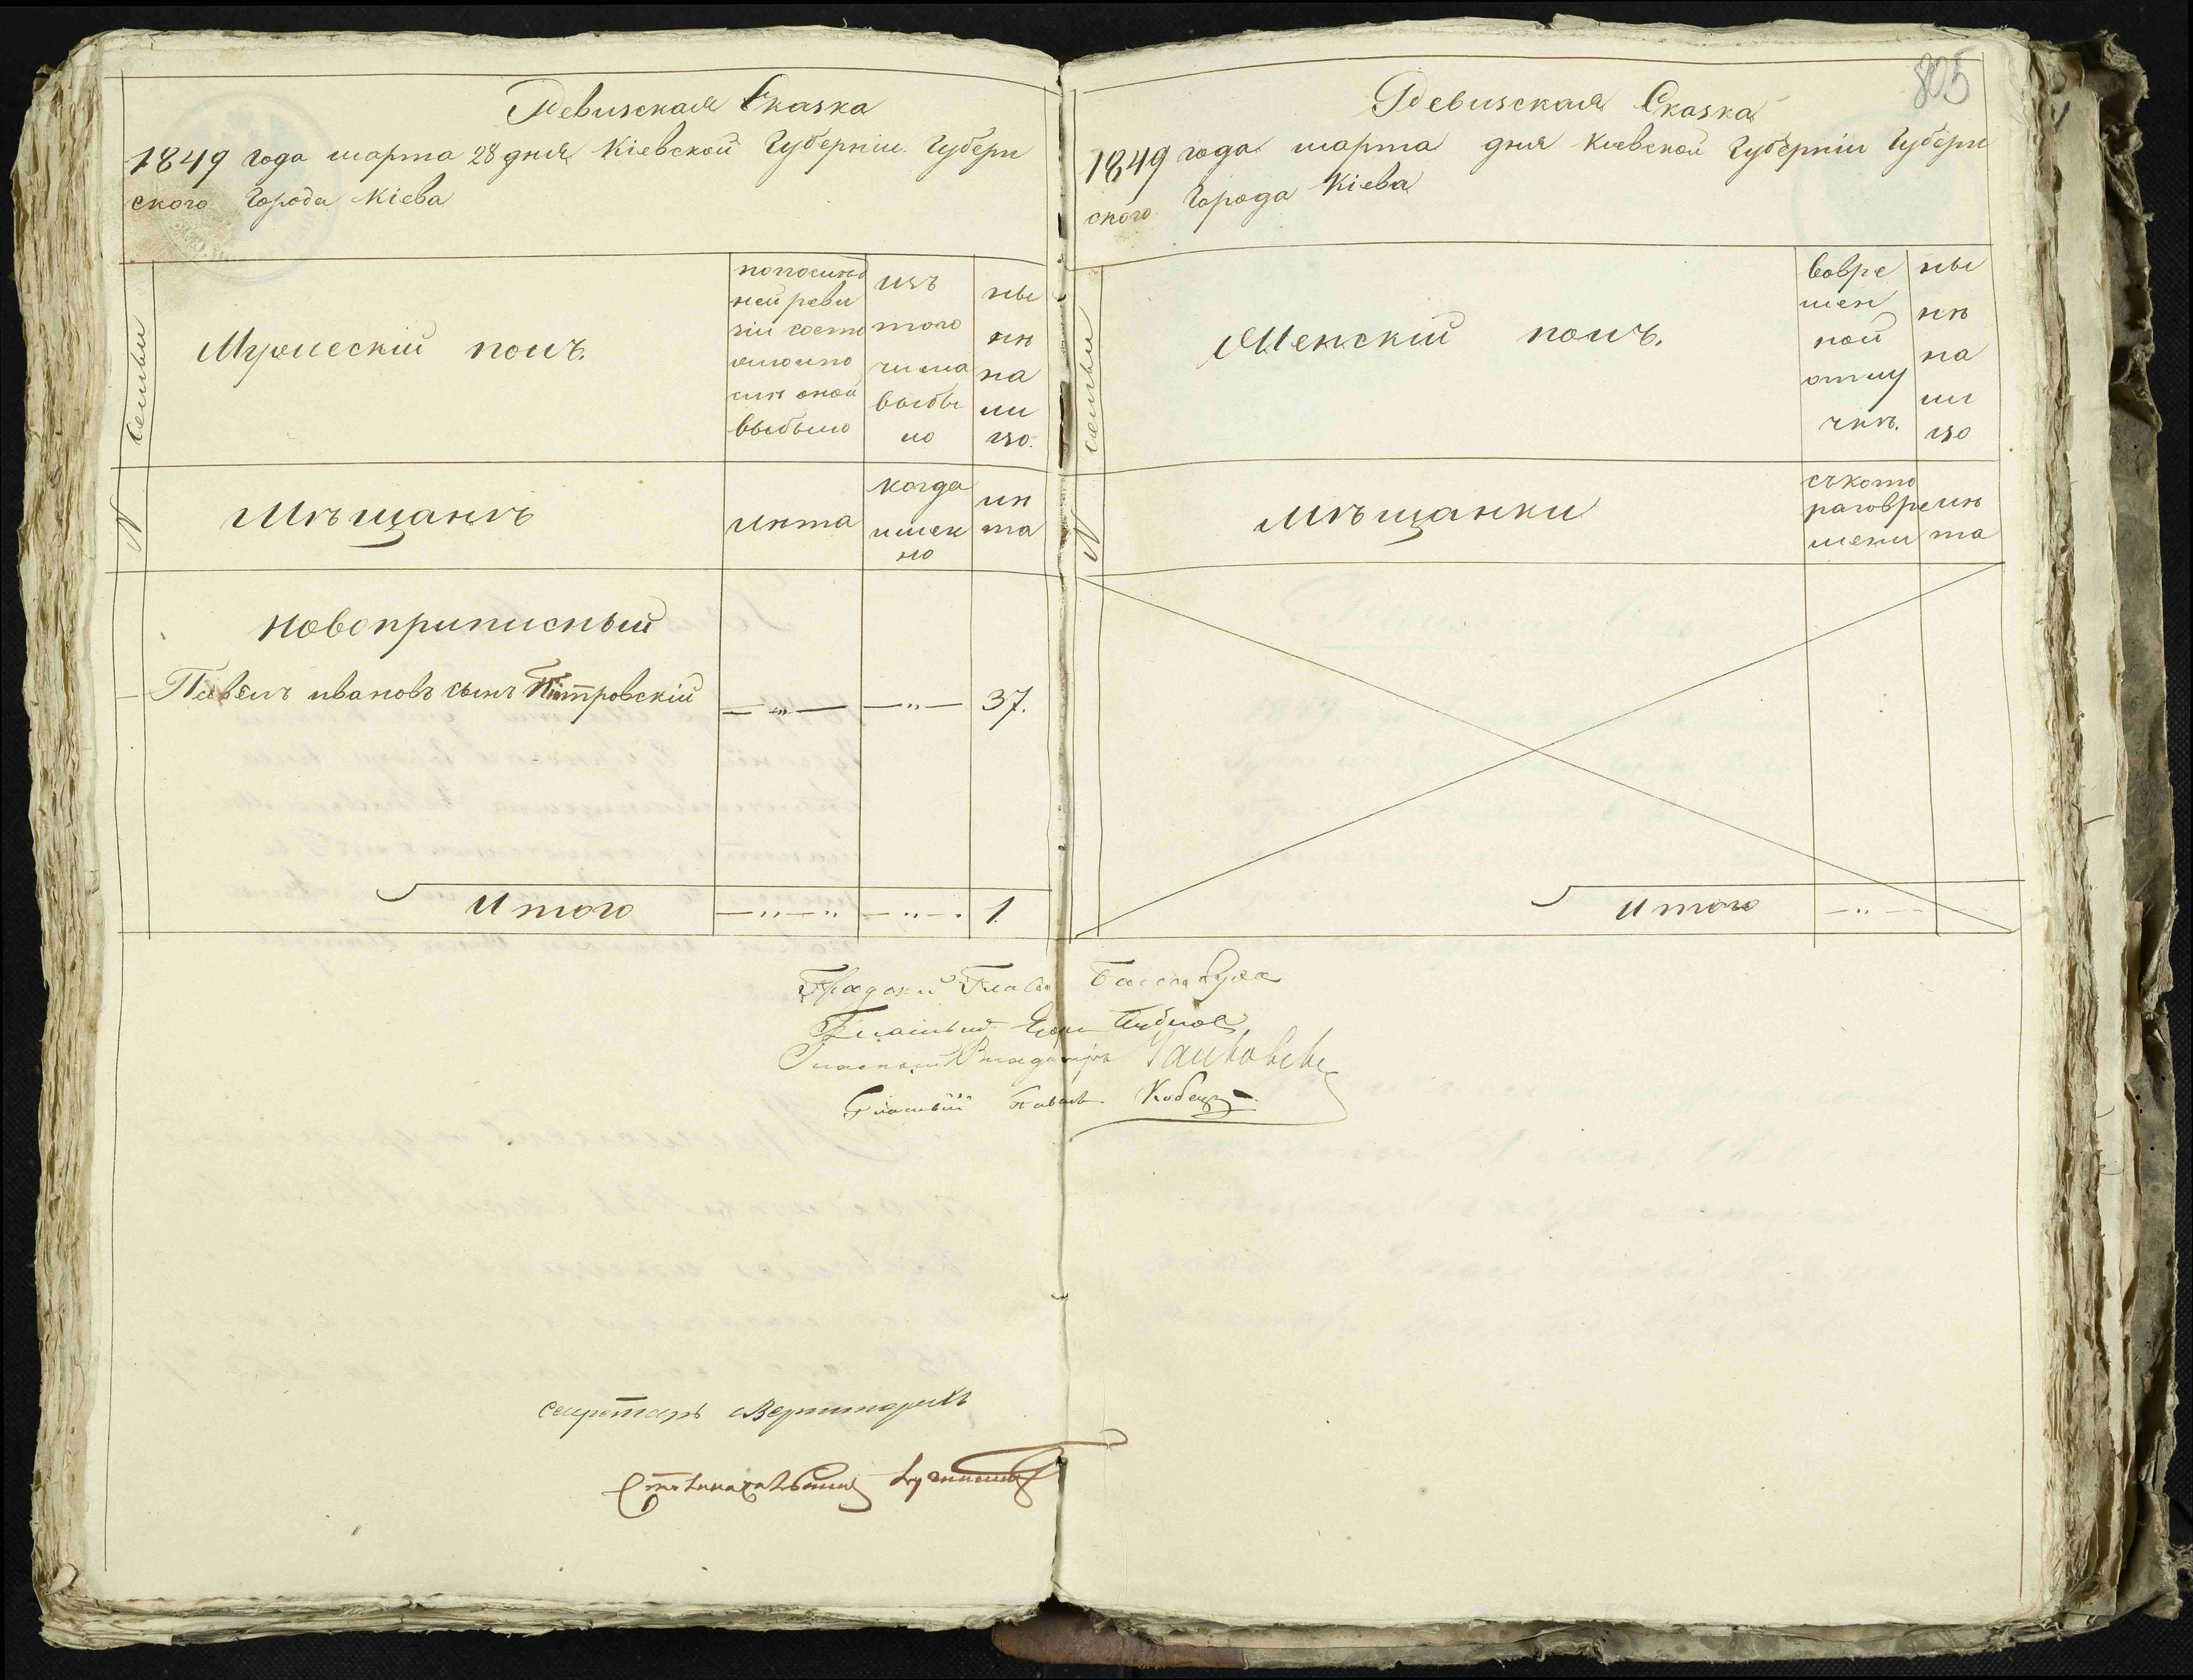 Ревизская Сказка
1849 года марта 28 дня Кіевской Губерніи Губерн
ского Города Кіева
Семьи
N
Мужескій полъ.
попослед
ней реви
зіи состо
яло ипо
слѣ оной
выбыло
изъ
того
числа
выбы
ло
ны
нѣ
на
ли
цо.
Мѣщанъ
лѣта
когда
имен
но
лѣ
та
Новоприписный
Павелъ ивановъ сынъ Петровскій — „ — — „ — 37.
Итого — „ — „ — „ — . 1.
805
Ревизская Сказка
1849 года марта дня Кіевской Губерніи Губерн
ского Города Кіева
семьи
N
Женскій полъ.
вовре
мен
ной
отлу
чкѣ.
ны
нѣ
на
ли
цо
Мѣщанки
съкото
раговре
мени
лѣ
та
Итого — „ — —
Градский Глава
Гласный
Гласный Владимиръ
Гласный Павелъ Кобецъ
Секретарь